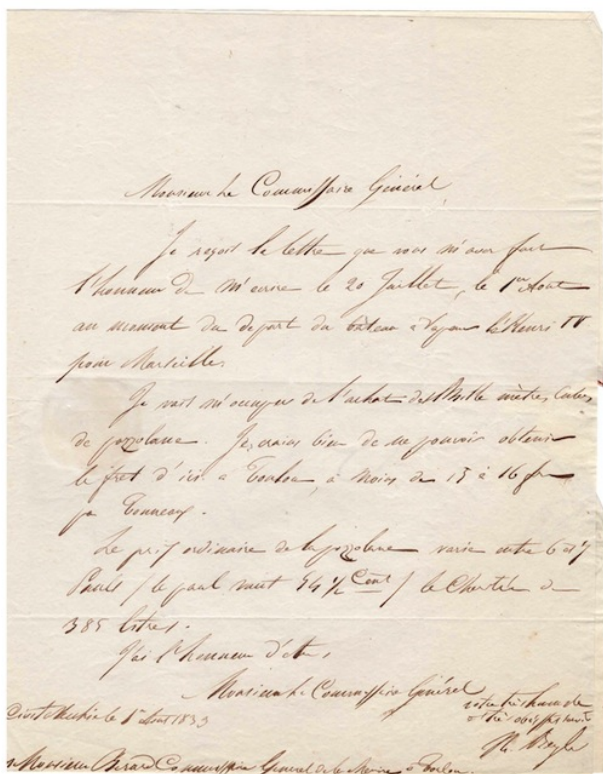 Monsieur Le Commissaire Général
Je reçois la lettre que vous m'avez fait
l'honneur de m'ecrire le 20 Juillet, le 1er Aout
au moment du depart du bâteau à vapeur le Henri IV
pour Marseille.
Je vais m'occuper de l'achat des Mille mètres Cubes
de pozzolane. Je crains bien de ne pouvoir obtenir
le fret d'ici a Toulon, à moins de 15 à 16 fr
pr Tonneaux.
Le prix ordinaire de la pozzolane varie entre 6 et 7
Pauls / le paul vaut 54 1/2 Cent / la Charetée de
385 litres.
J'ai l'honneur d'etre,
Monsieur Le Commissaire Général
votre très humble
et très obéissant serviteur
Civita Vecchia le 1er Aout 1833
H. Beyle
Monsieur Berard Commissaire General de la Marine à Toulon